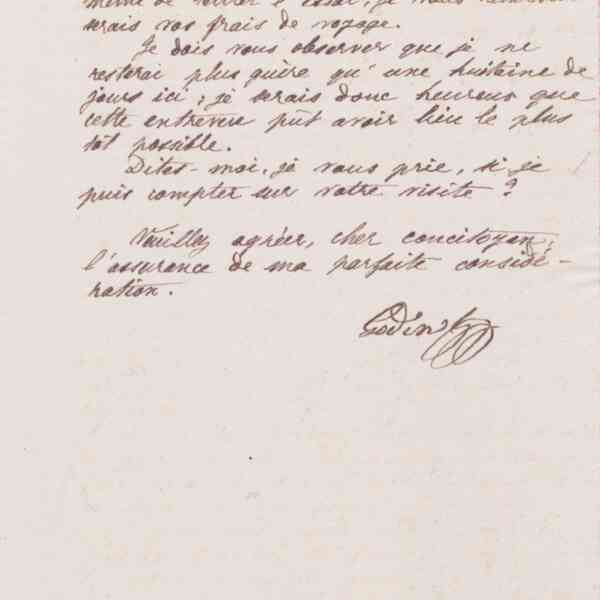 serais vos frais de voyage.
Je dois vous observer que je ne
resterai plus guère qu'une huitaine de
jours ici; je serais donc heureux que
cette entrevue pût avoir lieu le plus
tôt possible.
Dites-moi, je vous prie, si je
puis compter sur votre visite ?
Veuillez agréer, cher concitoyen,
l'assurance de ma parfaite considé-
ration.
Godin